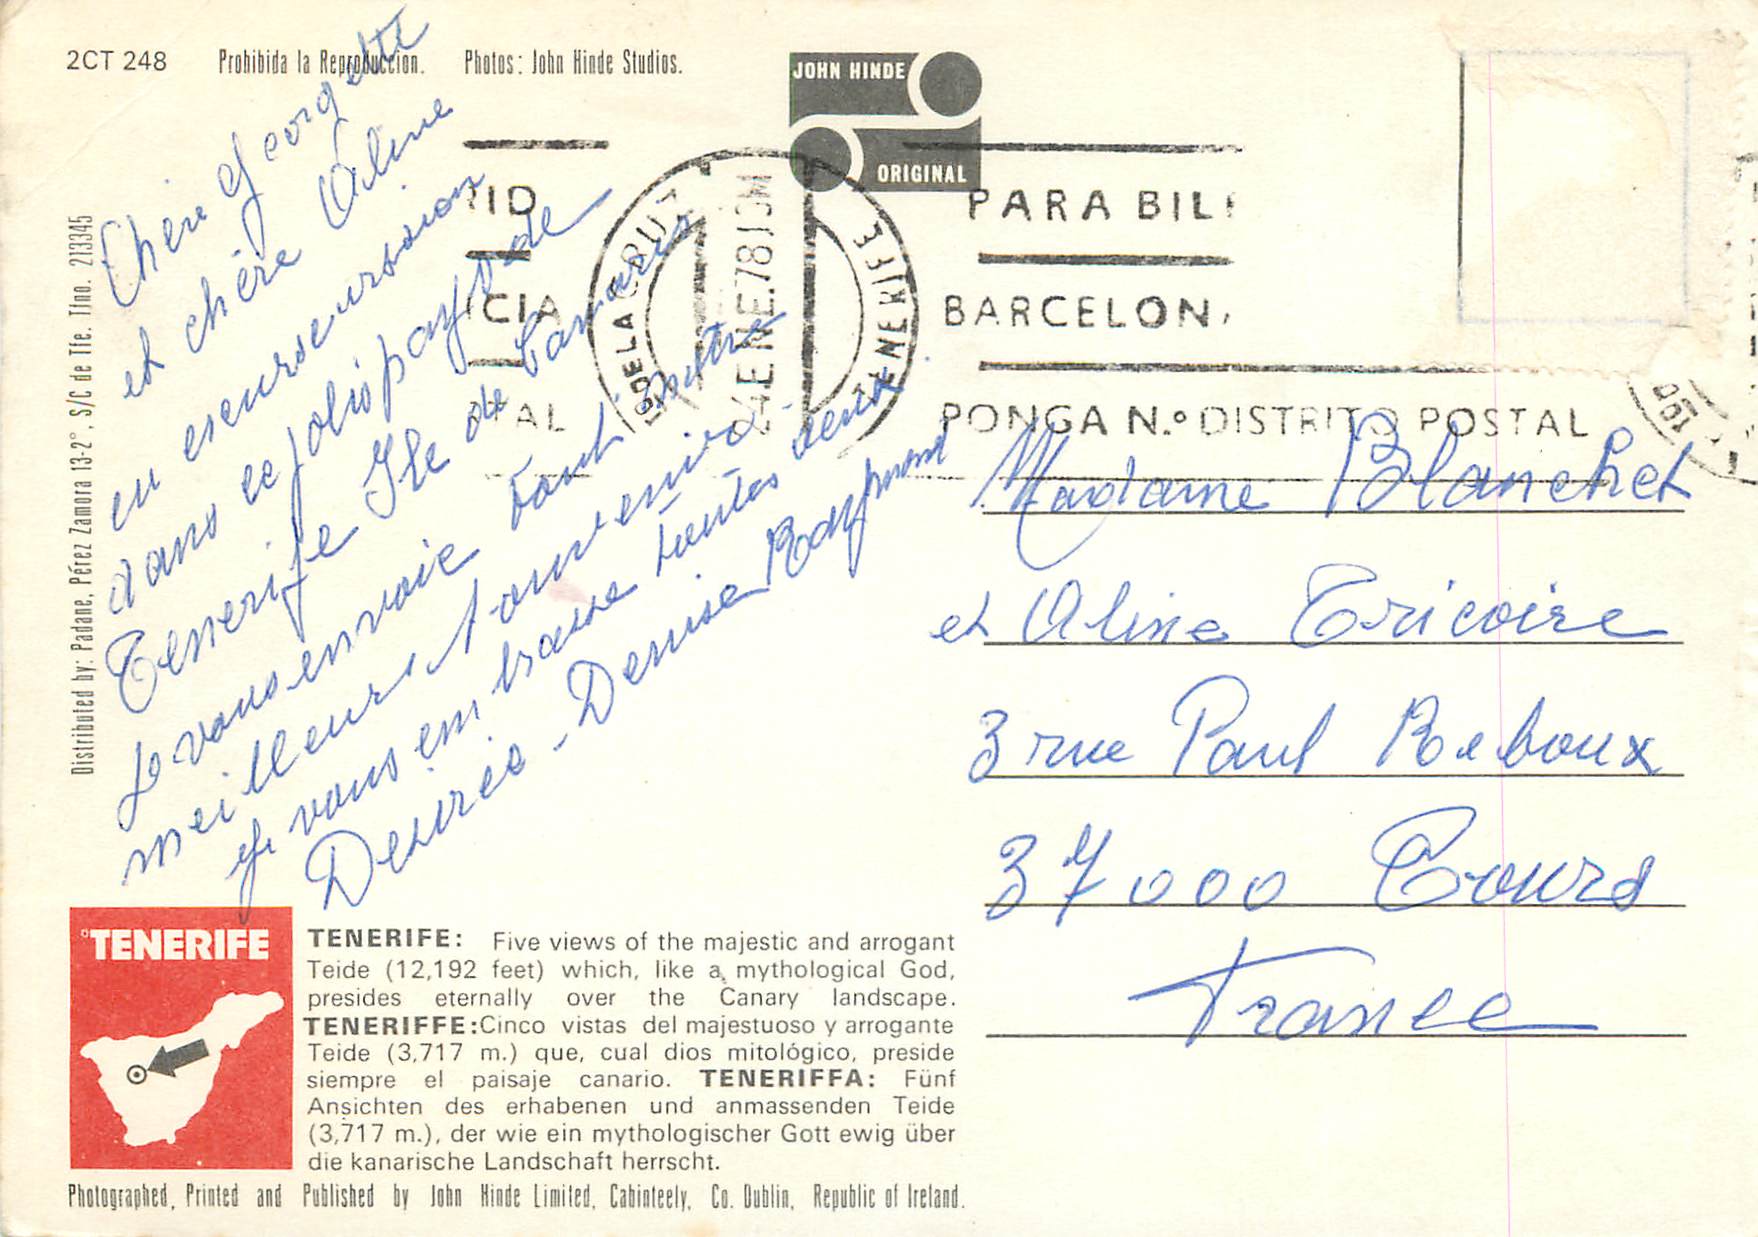 2CT 248 Prohibida la Reproducción. Photos: John Hinde Studios.
JOHN HINDE
ORIGINAL
RID
ICIA
TAL
TO DE LA CRUZ
TENERIFE
24 ENE. 78
PARA BIL
BARCELON
PONGA N.º DISTRITO POSTAL
Distributed by: Padane, Pérez Zamora 13-2º, S/C de Tfe. Tfno. 213345
Chère Georgette
et chère Aline
en escursurssion
dans ce jolis pays de
Tenerife Ile de Canaries
Je vous envoie tout notre
meilleurs souvenird
je vous embrasse toutes deux
Desirée - Denise Raymond
Madame Blanchet
et Aline Tricoire
3 rue Paul Reboux
37000 Tours
France
TENERIFE
TENERIFE: Five views of the majestic and arrogant
Teide (12,192 feet) which, like a mythological God,
presides eternally over the Canary landscape.
TENERIFFE: Cinco vistas del majestuoso y arrogante
Teide (3,717 m.) que, cual dios mitológico, preside
siempre el paisaje canario. TENERIFFA: Fünf
Ansichten des erhabenen und anmassenden Teide
(3,717 m.), der wie ein mythologischer Gott ewig über
die kanarische Landschaft herrscht.
Photographed, Printed and Published by John Hinde Limited, Cabinteely, Co. Dublin, Republic of Ireland.